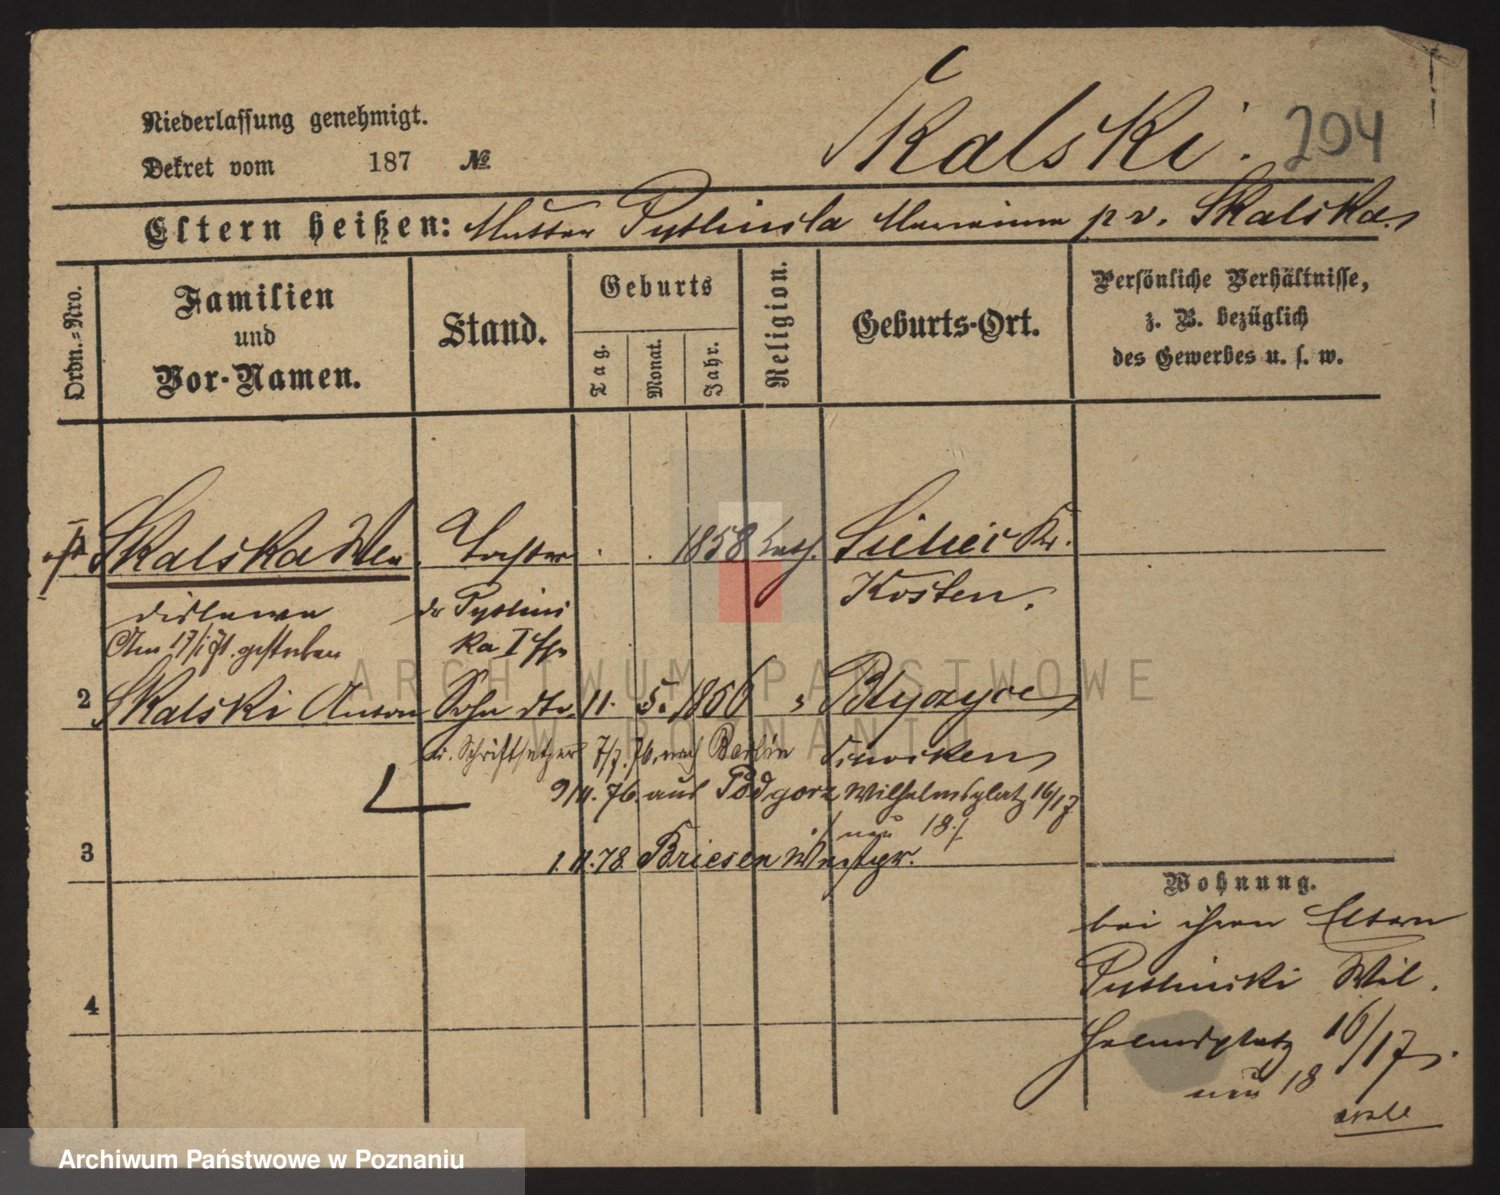 Niederlassung genehmigt.
Dekret vom 187 №
Skalski. 204
Eltern heißen: Mutter Pytlinska Marianna p. v. Skalska.
Ordn.-Nro.
Familien
und
Vor-Namen.
Stand.
Geburts
Tag.
Monat.
Jahr.
Religion.
Geburts-Ort.
Persönliche Verhältnisse,
z. B. bezüglich
des Gewerbes u. s. w.
Skalska Wla Tochter 1858 kath. Kr.
dislawa der Pytlins Kosten.
Am 17/1 71. gestorben ka I Ehe
2 Skalski Anton Sohn 11. 5. 1856
Schriftsetzer 7/7. 76. nach Berlin
9/11. 76. aus Podgorz Wilhelmsplatz 16/17
neu 18
3 1. 11. 78 Briesen Westpr.
Wohnung.
bei ihren Eltern
Pytlinski Wil
helmsplatz 16/17.
neu 18
4
ARCHIWUM PAŃSTWOWE
W POZNANIU
Archiwum Państwowe w Poznaniu